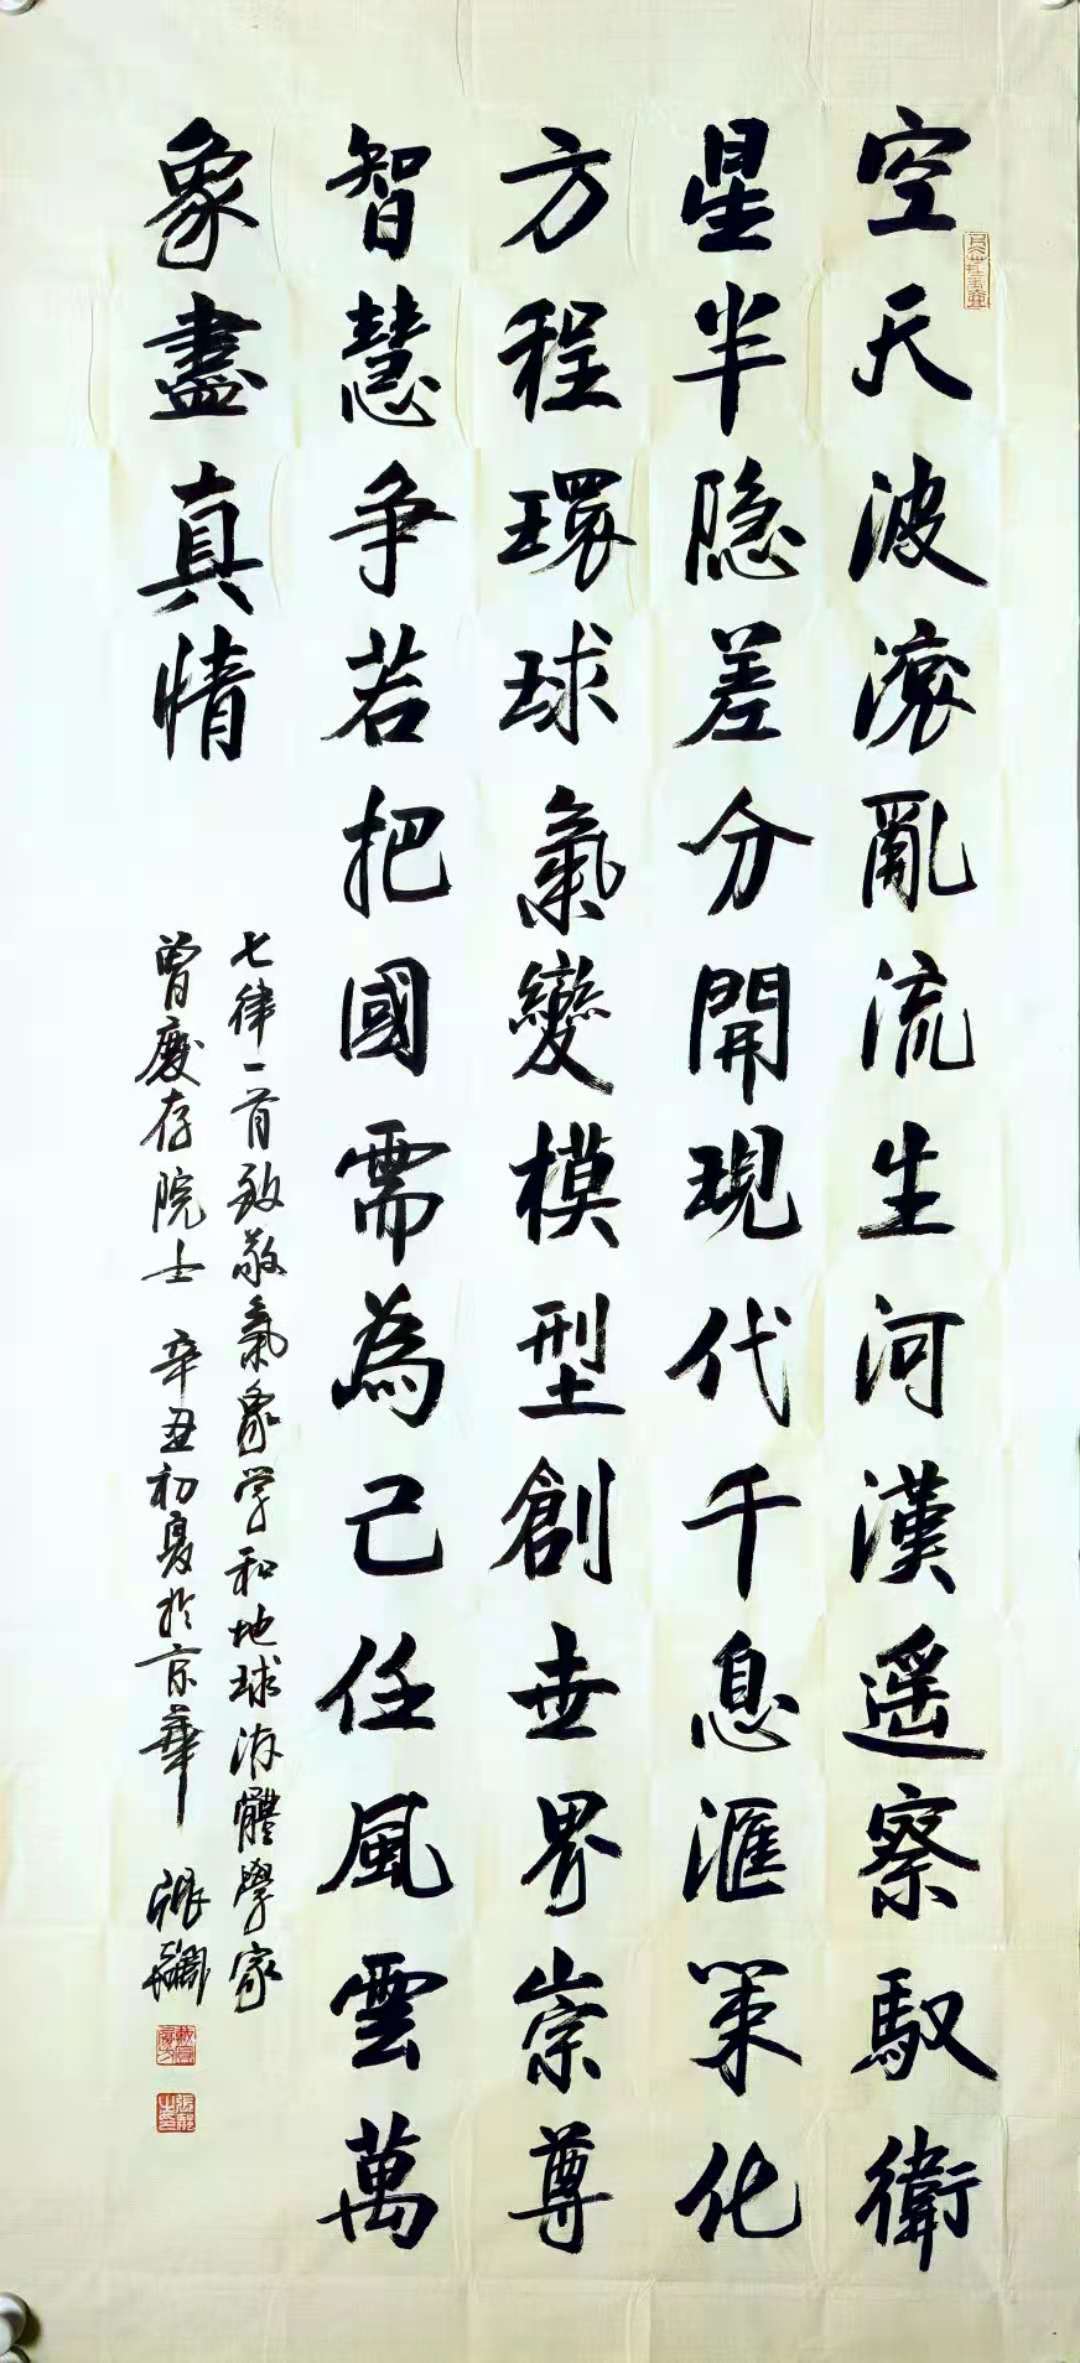 空天波滚亂流生河漢遥察馭衛
星半隐差分開現代千息滙策化
方程環球氣變模型創世界崇尊
智慧争若把國需為己任風雲萬
象盡真情
七律一首致敬氣象学和地球流體學家
曾慶存院士 辛丑初夏於京華 張